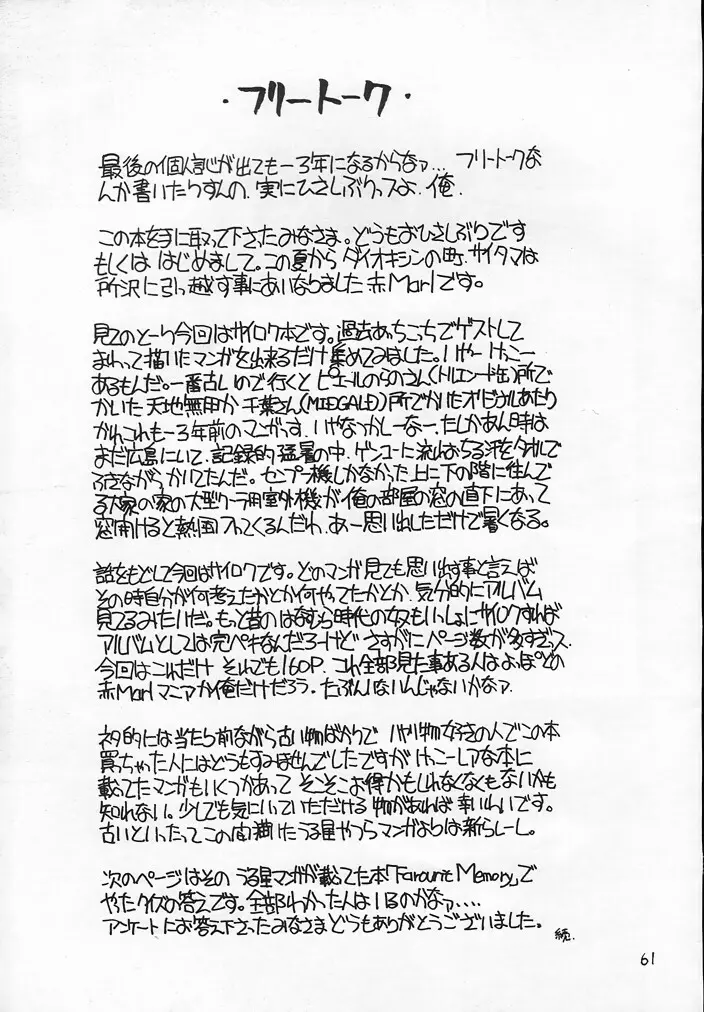 ・フリートーク・
最後の個人誌が出てもー3年になるからなァ… フリートークな
んか書いたりすんの、実にひさしぶりっスよ、俺、
この本を手に取って下さったみなさま。どうもおひさしぶりです
もしくは はじめまして。この夏から ダイオキシンの町、サイタマは
所沢に引っ越す事にあいなりました 赤Marlです。
見てのとーり今回はサイロク本です。過去あっちこっちでゲストして
まわって描いたマンガを出来るだけ集めてみました。いやー けっこー
あるもんだ。一番古いので行くと ピエールのらのさん(トルエンド缶)所で
かいた 天地無用か 千葉さん(MIDGALD)所でかいたオリジナルあたり
かれこれも一3年前のマンガっす、いやなつかしーなー、たしかあん時は
まだ広島にいて、記録的猛暑の中、ゲンコーに流れおちる汗をタオルで
ふきながら かいてたんだ。センプー機しかなかった上に下の階に住んで
る大家の家の大型クーラー用室外機が俺の部屋の窓の直下にあって
窓開けると熱風入ってくるんだわ、あー思い出しただけで暑くなる。
話をもどして今回はサイロクです。どのマンガ見ても思い出す事と言えば
その時自分が何考えたかとか何やってたかとか、気分的にアルバム
見てるみたいだ。もっと昔の はなむら時代の奴もいっしょにサイロクすれば
アルバムとしては完ペキなんだろーけど さすがにページ数が多すぎっス
今回はこれだけ それでも160P、これ全部見た事ある人はよっぽどの
赤Marlマニアか俺だけだろう・たぶんいないんじゃないかなァ
ネタ的には当たり前ながら古い物ばかりで ハヤリ物好きの人でこの本
買っちゃった人にはどうもすみませんでしたですが けっこーレアな本に
載ってたマンガもいくつかあって そこそこお得かもしれなくなくもないかも
知れない。少しでも気にいっていただける物があれば 幸いです。
古いといったってこの間描いたうる星やつらマンガよりは新らしーし。
次のページはその うる星マンガが載ってた本「Favourite Memory」で
やったクイズの答えです。全部わかった人はいるのかなァ….
アンケートにお答え下さったみなさまどうもありがとうございました。
続.
61